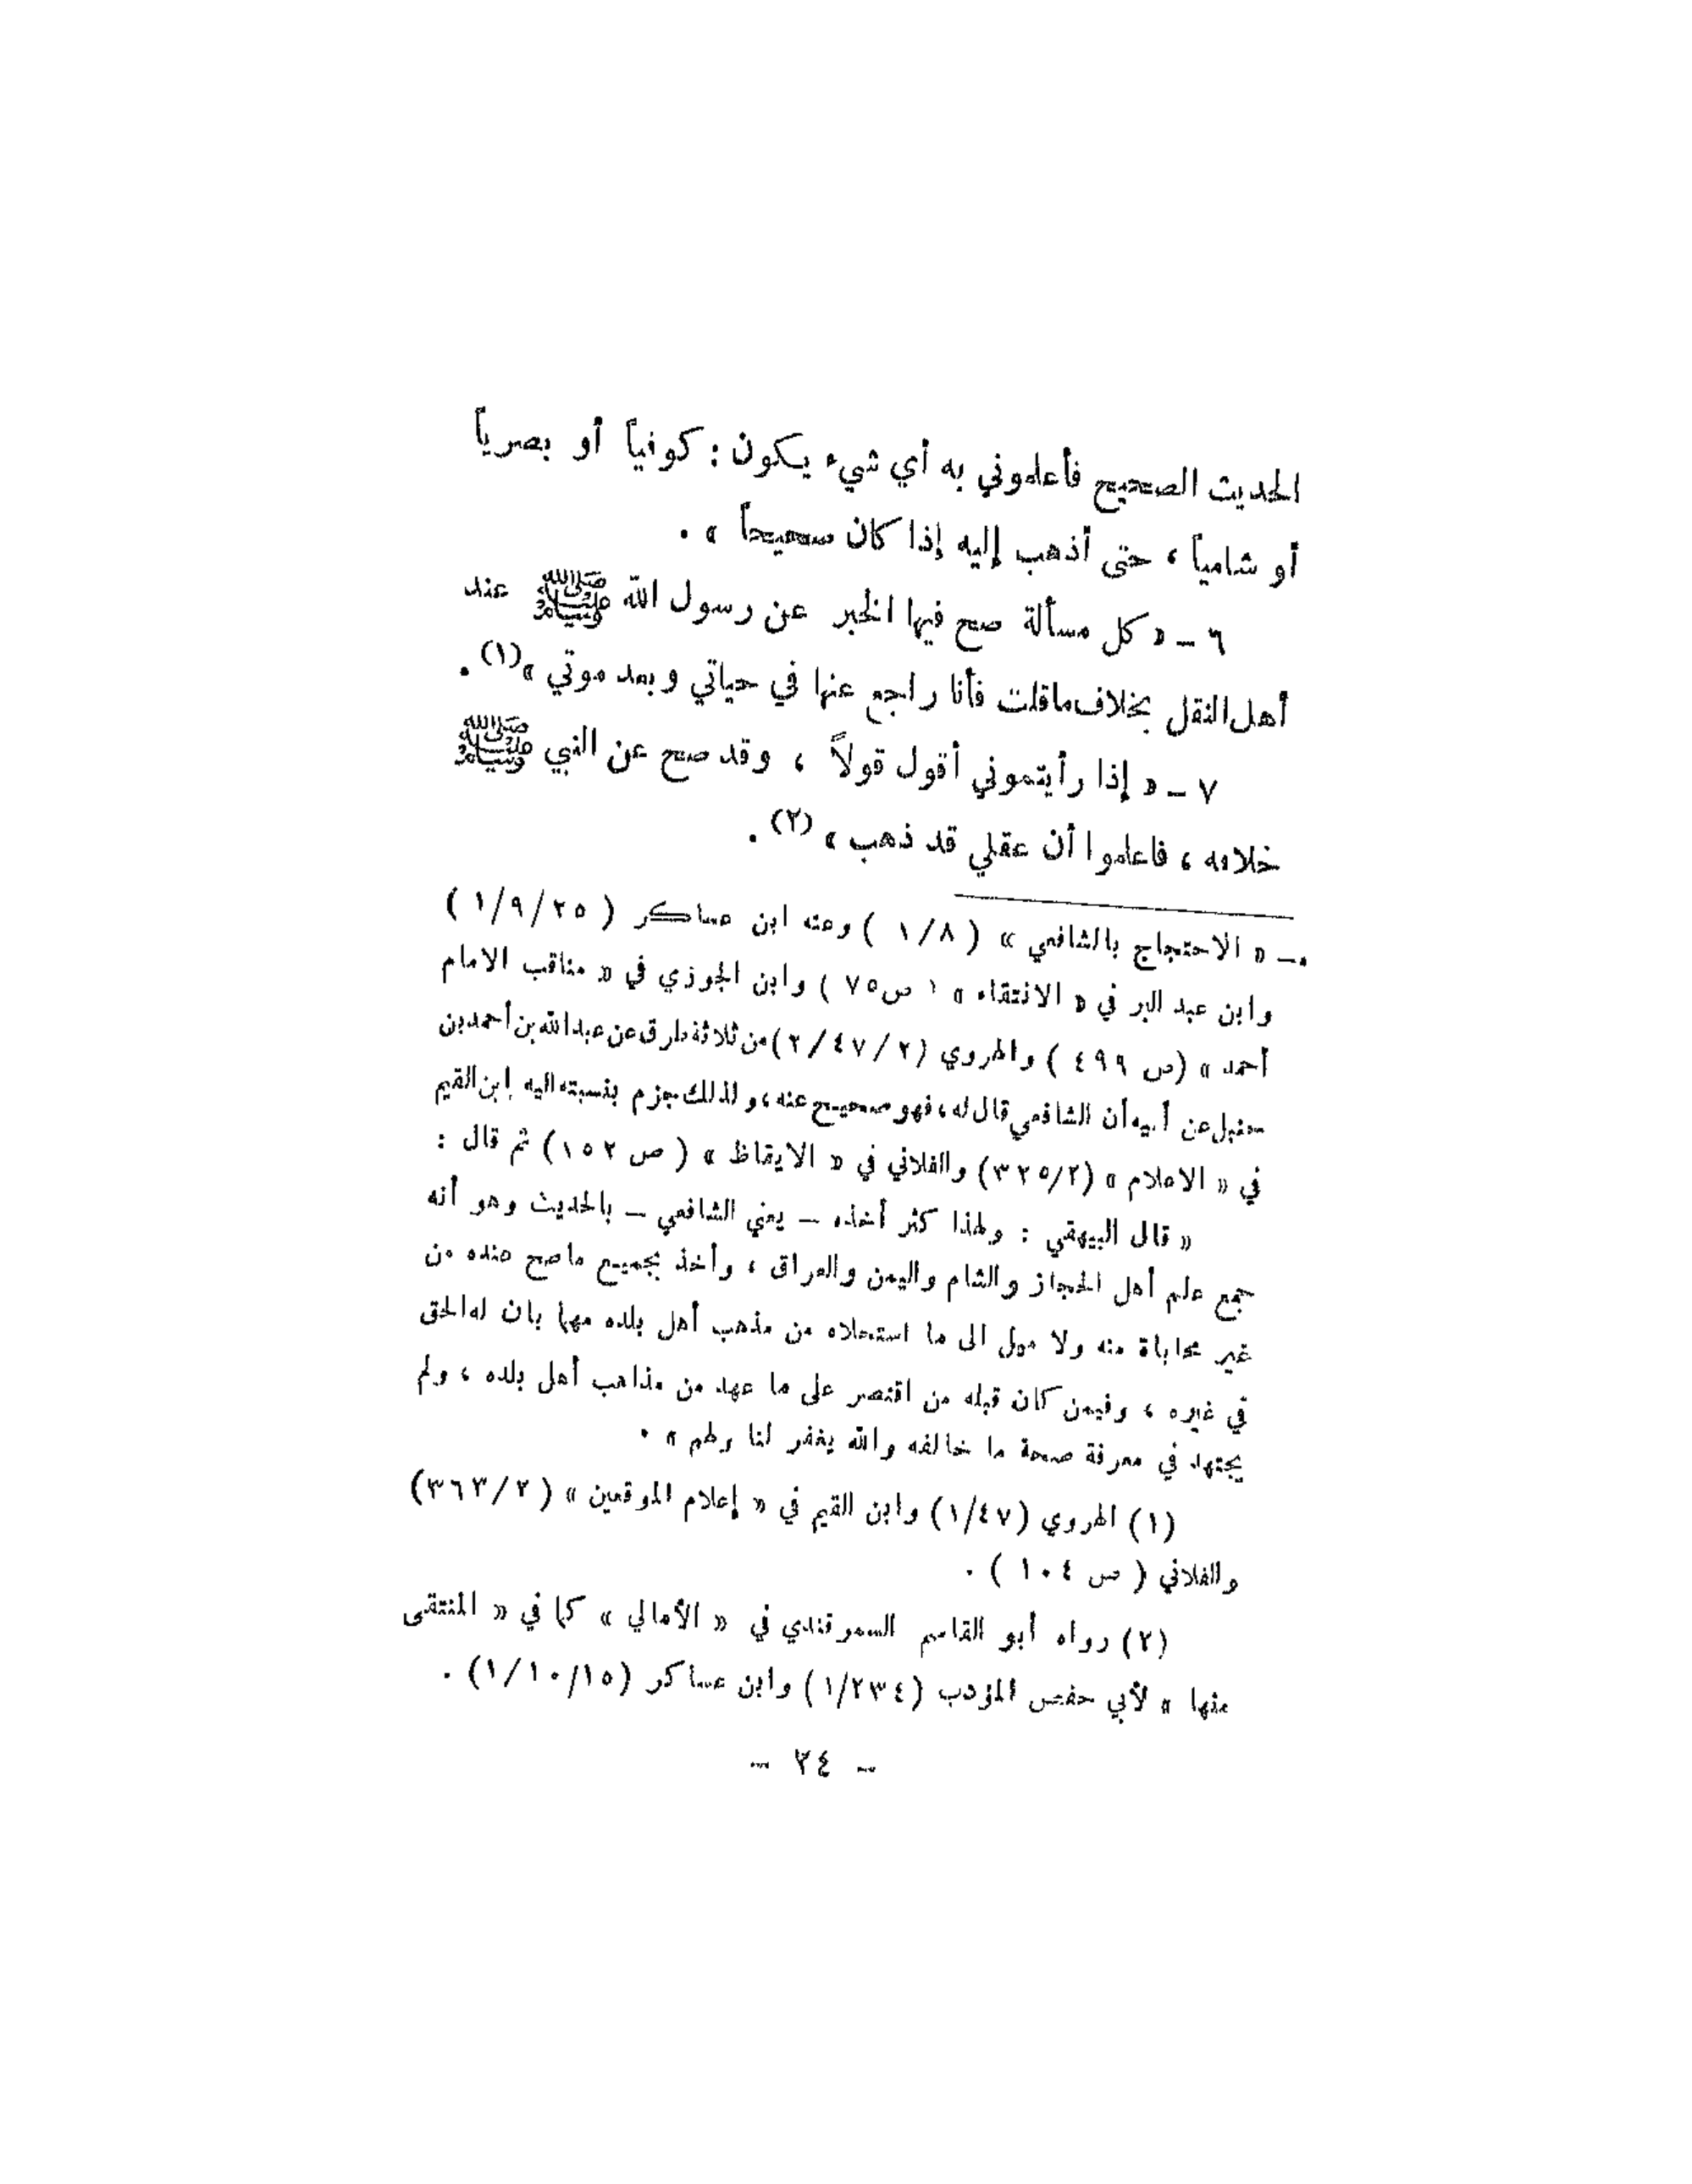 الحديث الصحيح فأعلموني به أي شيء يكون : كوفياً أو بصرياً
أو شامياً ، حتى أذهب إليه إذا كان صحيحاً » .
٦ – « كل مسألة صح فيها الخبر عن رسول الله ﷺ عند
أهل النقل بخلاف ما قلت فأنا راجع عنها في حياتي وبعد موتي »(١) .
٧ – « إذا رأيتموني أقول قولاً ، وقد صح عن النبي ﷺ
خلافه ، فاعلموا أن عقلي قد ذهب » (٢) .
– « الاحتجاج بالشافعي » ( ١/٨ ) وعنه ابن عساكر ( ١/٩/٢٥ )
وابن عبد البر في « الانتقاء » ( ص٧٥ ) وابن الجوزي في « مناقب الامام
أحمد » (ص ٤٩٩ ) والهروي (٢/٤٧/٢) من ثلاثة طرق عن عبد الله بن أحمد بن
حنبل عن أبيه أن الشافعي قال له ، فهو صحيح عنه ، ولذلك جزم بنسبته اليه ابن القيم
في « الاعلام » (٣٢٥/٢) والفلاني في « الايقاظ » ( ص ١٥٢) ثم قال :
« قال البيهقي : ولهذا كثر أخذه – يعني الشافعي – بالحديث وهو أنه
جمع علم أهل الحجاز والشام واليمن والعراق ، وأخذ بجميع ماصح عنده من
غير محاباة منه ولا ميل الى ما استحلاه من مذهب أهل بلده مهما بان له الحق
في غيره ، وفيمن كان قبله من اقتصر على ما عهد من مذاهب أهل بلده ، ولم
يجتهد في معرفة صحة ما خالفه والله يغفر لنا ولهم » .
(١) الهروي (١/٤٧) وابن القيم في « إعلام الموقعين » ( ٣٦٣/٢)
والفلاني ( ص ١٠٤ ) .
(٢) رواه أبو القاسم السمرقندي في « الأمالي » كما في « المنتقى
منها » لأبي حفص المؤدب (١/٢٣٤) وابن عساكر (١/١٠/١٥) .
– ٢٤ –